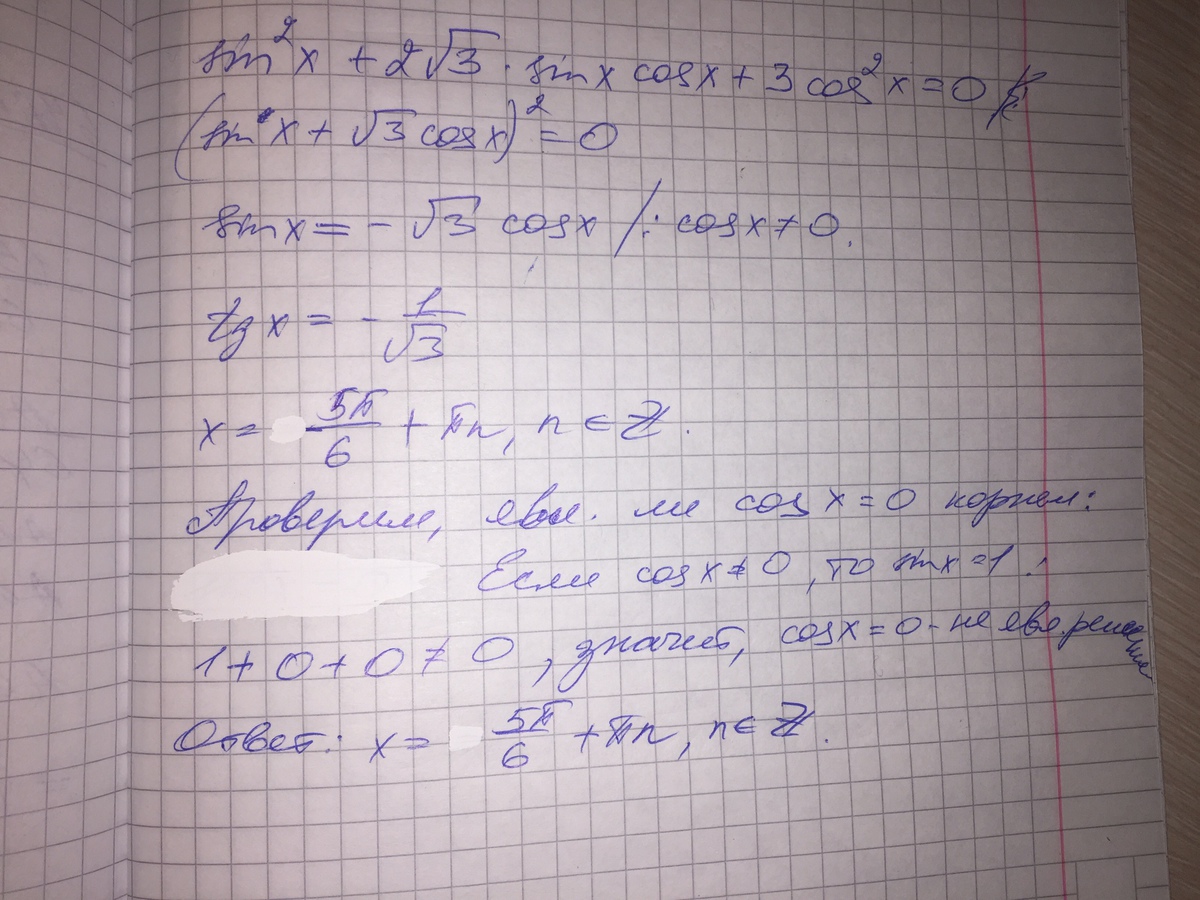 sin²x + 2√3 · sinx cosx + 3 cos²x = 0
(sin x + √3 cosx)² = 0
sinx = - √3 cosx /: cosx ≠ 0.
tgx = - 1/√3
x = 5π/6 + πn, n ∈ Z.
Проверим, явл. ли cos x = 0 корнем:
Если cosx ≠ 0, то sinx = 1 :
1 + 0 + 0 ≠ 0, значит, cosx = 0 - не явл. решением
Ответ: x = 5π/6 + πn, n ∈ Z.